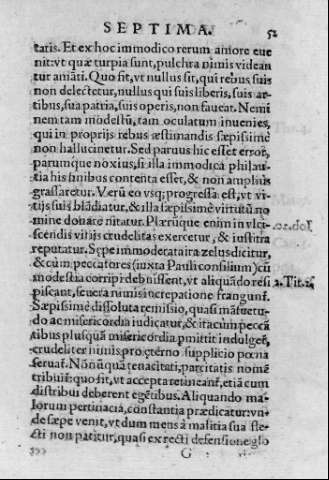 SEPTIMA. 52
taris. Et ex hoc immodico rerum amore eue
nit: vt quæ turpia sunt, pulchra nimis videan
tur amāti. Quo fit, vt nullus sit, qui rebus suis
non delectetur, nullus qui suis liberis, suis ar-
tibus, sua patria, suis operis, non faueat. Nemi
nem tam modestū, tam oculatum inuenies,
qui in proprijs rebus æstimandis sæpissime
non hallucinetur. Sed paruus hic esset error,
parumque noxius, si illa immodica philau-
tia his finibus contenta esset, & non amplius
grassaretur. Verū eo vsq; progressa est, vt vi-
tijs suis blādiatur, & illa sæpissime virtutū no
mine donare nitatur. Plærūque enim in vlci-
scendis vitijs crudelitas exercetur, & iustitia
reputatur. Sępe immoderata ira zelus dicitur,
& cùm peccatores (iuxta Pauli consilium) cū
modestia corripi debuissent, vt aliquādo resi
2. Tit. 2.
piscant, seuera nimis increpatione frangunt.
Sæpissime dissoluta remissio, quasi māsuetu-
do ac misericordia iudicatur, & ita cùm peccā
tibus plusquā misericordia pmittit indulgēs,
crudeliter nimis pro æterno supplicio pœna
seruat. Nōnūquā tenacitati, parcitatis nomē
tribuūt: quo fit, vt accepta retineant, etiā cum
distribui deberent egētibus. Aliquando ma-
lorum pertinacia, constantia prædicatur: vn-
de sæpe venit, vt dum mens à malitia sua fle-
cti non patitur, quasi ex recti defensione glo
G